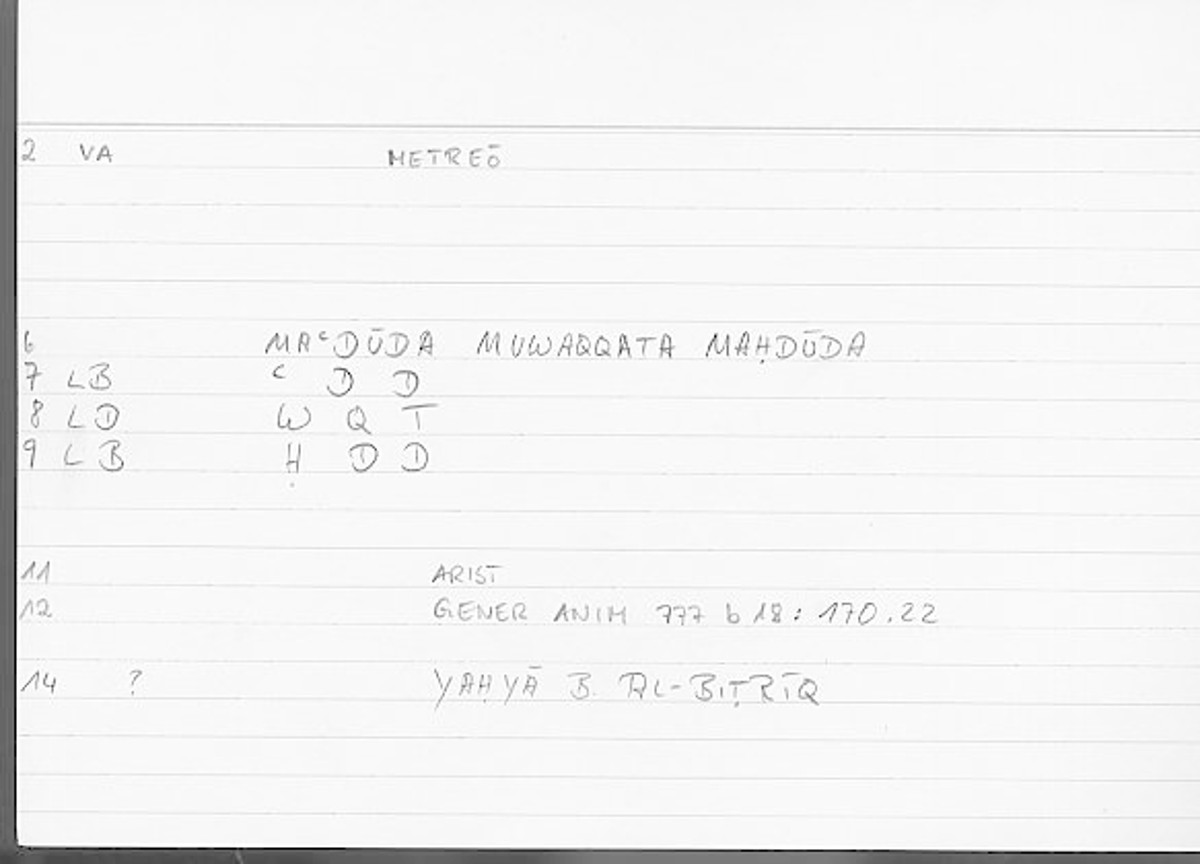 2 VA METREŌ
6 MAᶜDŪDA MUWAQQATA MAḤDŪDA
7 LB ᶜ D D
8 LD W Q T
9 LB Ḥ D D
11 ARIST
12 GENER ANIM 777 b 18: 170.22
14 ? YAḤYĀ B. AL-BIṬRĪQ